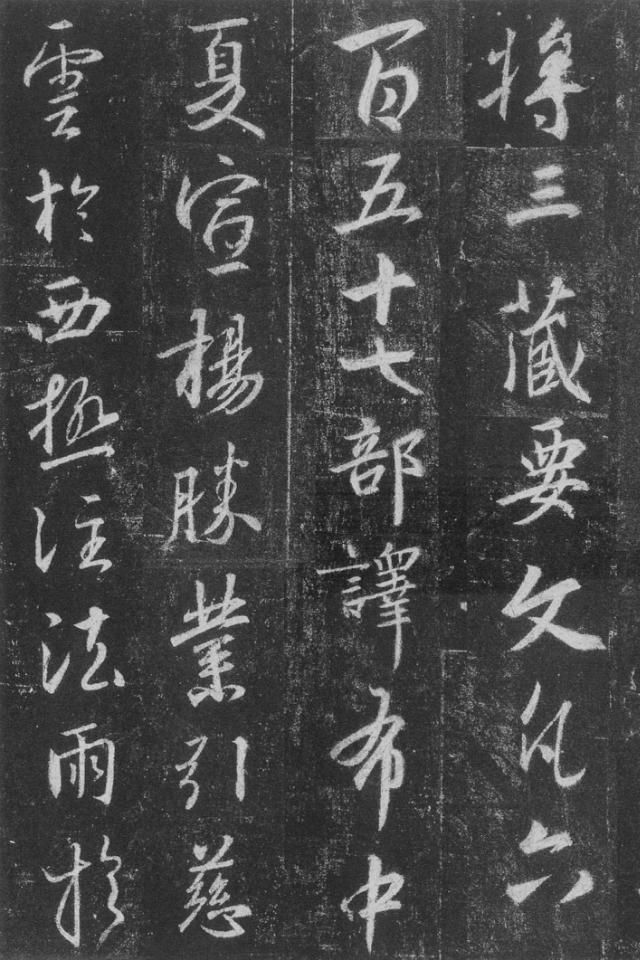 將三藏要文凡六
百五十七部譯布中
夏宣楊勝業引慈
雲於西極注法雨於